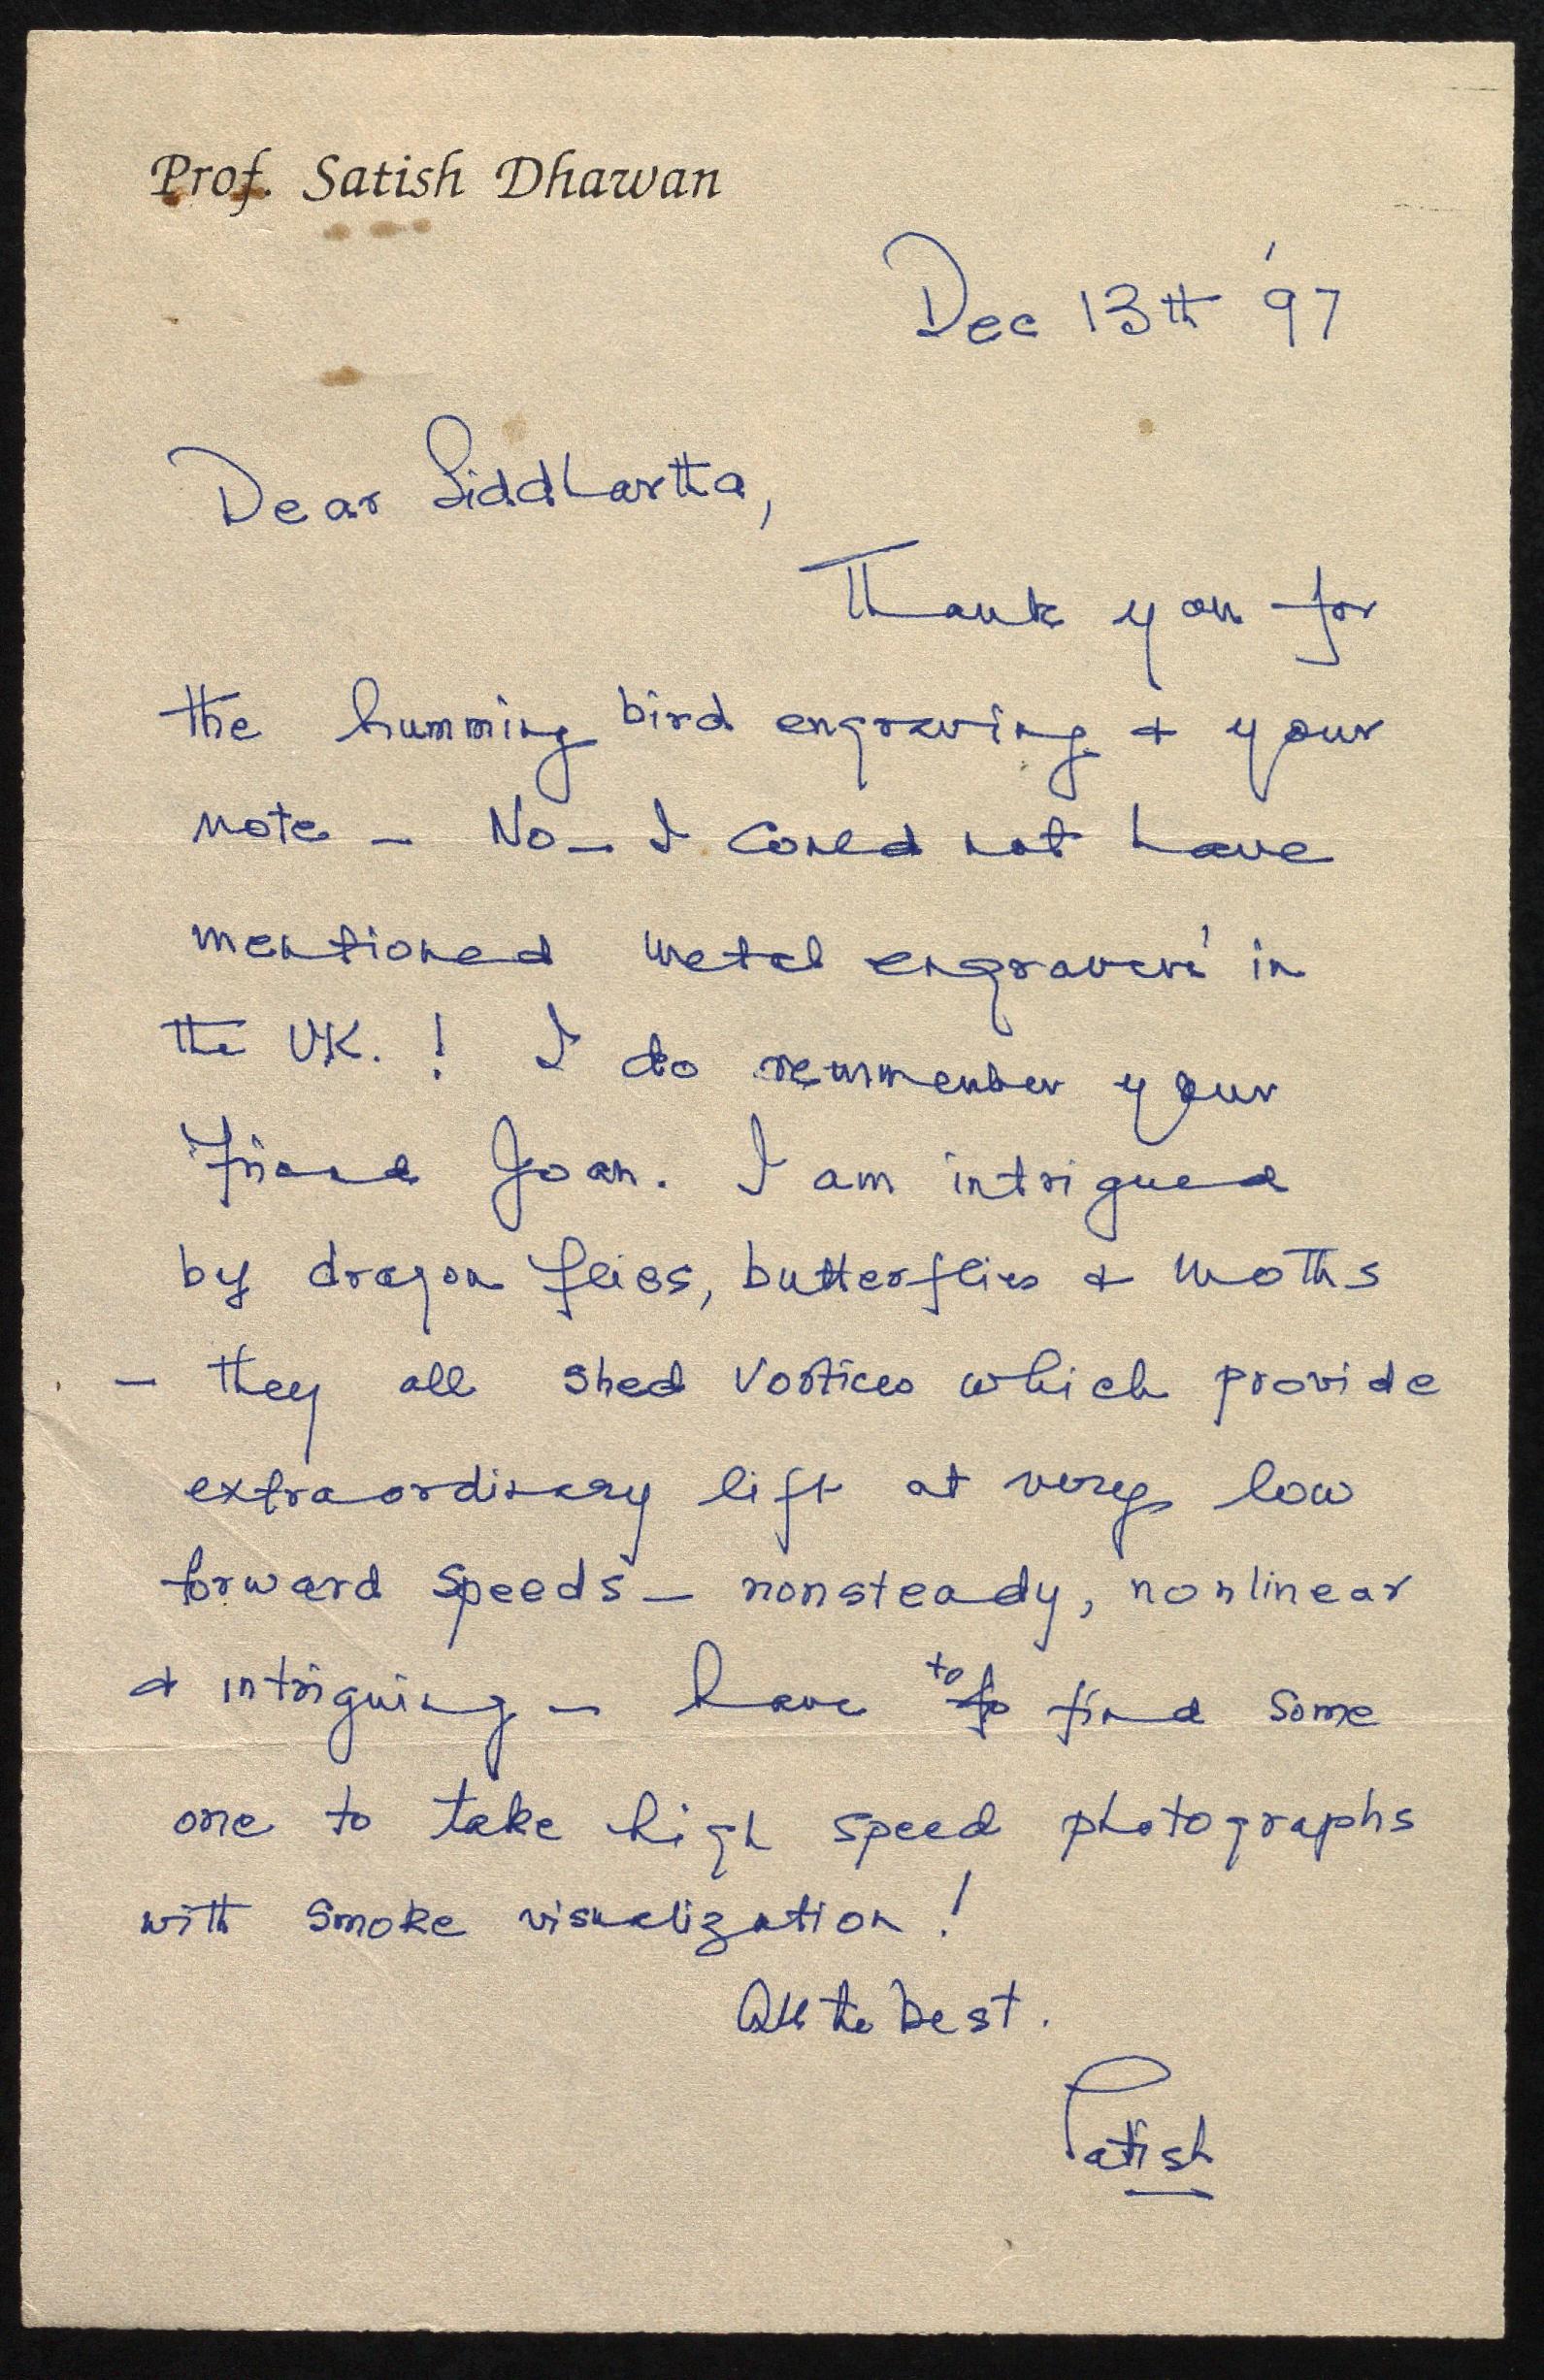 Prof. Satish Dhawan
Dec 13th '97
Dear Siddhartha,
Thank you for
the humming bird engraving & your
note – No – I could not have
mentioned metal engravers' in
the UK. ! I do remmember your
friend Joan. I am intrigued
by dragon flies, butterflies & moths
– they all shed vortices which provide
extraordinary lift at very low
forward speeds – nonsteady, nonlinear
& intriguing – have to find some
one to take high speed photographs
with smoke visualization !
All the best.
Satish